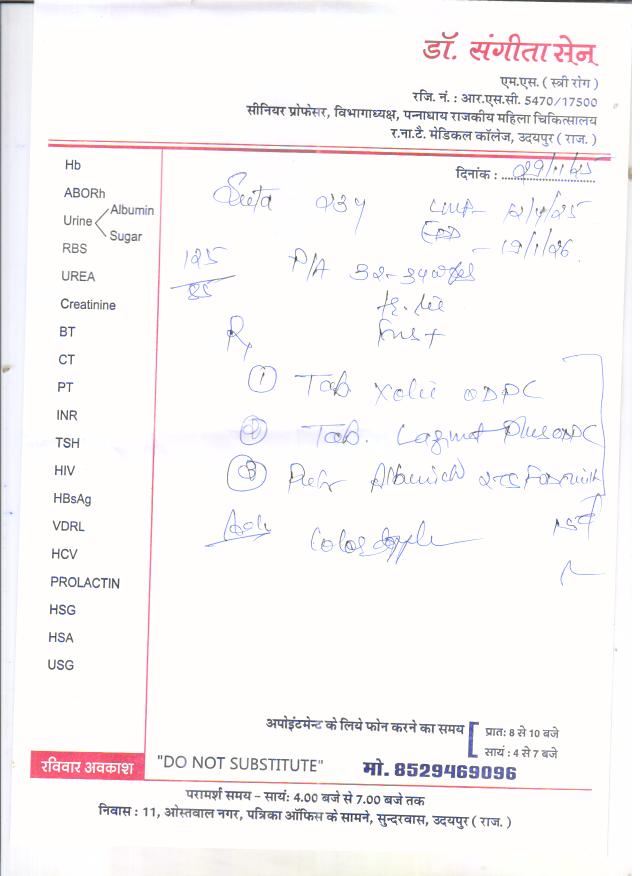 डॉ. संगीता सेन
एम.एस. ( स्त्री रोग )
रजि. नं. : आर.एस.सी. 5470/17500
सीनियर प्रोफेसर, विभागाध्यक्ष, पन्नाधाय राजकीय महिला चिकित्सालय
र.ना.टै. मेडिकल कॉलेज, उदयपुर ( राज. )
दिनांक : 29/11/25
Hb
ABORh
Urine Albumin
Sugar
RBS
UREA
Creatinine
BT
CT
PT
INR
TSH
HIV
HBsAg
VDRL
HCV
PROLACTIN
HSG
HSA
USG
23y LMP- 12/4/25
EDD - 19/1/26
125
85
P/A 32-34 wks
FHS +
Rx
① Tab ODPC
② Tab. Plus ODPC
③
Adv Color doppler
अपोइंटमेन्ट के लिये फोन करने का समय
प्रात: 8 से 10 बजे
सायं : 4 से 7 बजे
रविवार अवकाश
"DO NOT SUBSTITUTE"
मो. 8529469096
परामर्श समय – सायं: 4.00 बजे से 7.00 बजे तक
निवास : 11, ओस्तवाल नगर, पत्रिका ऑफिस के सामने, सुन्दरवास, उदयपुर ( राज. )